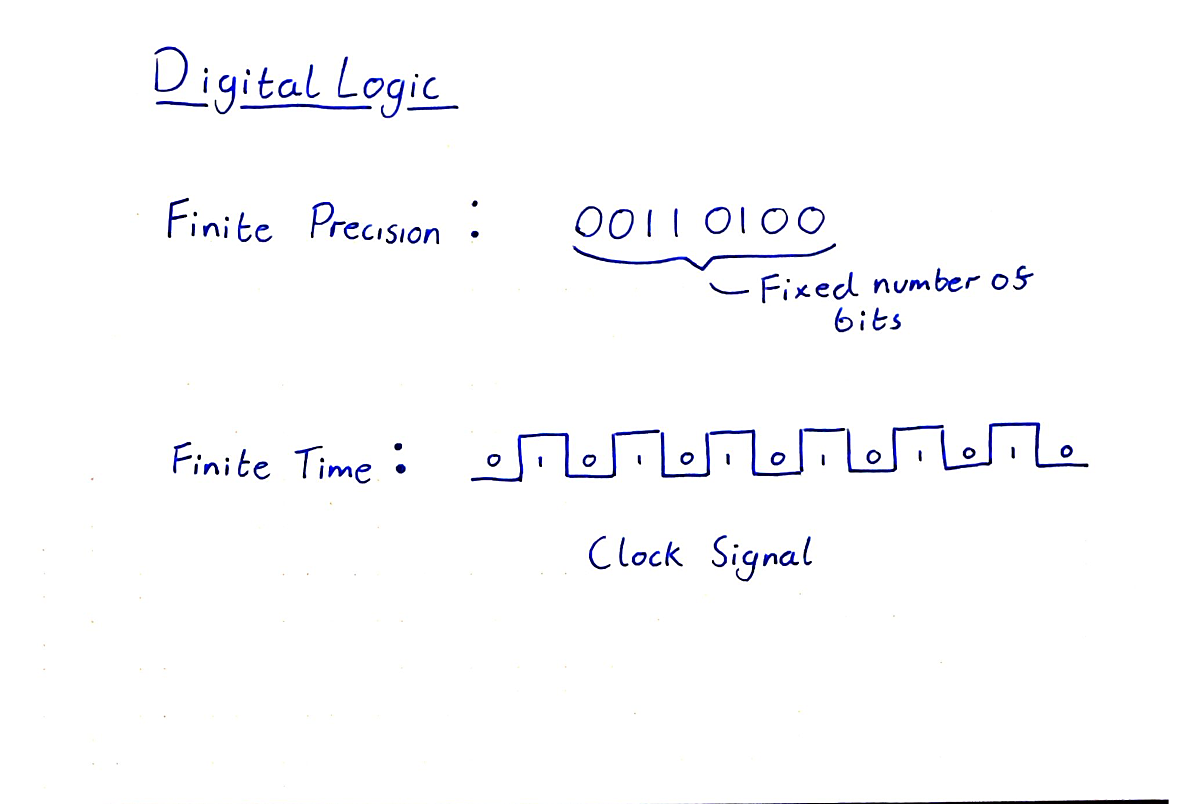 Digital Logic
Finite Precision : 00110100
Fixed number of
bits
Finite Time : 0 1 0 1 0 1 0 1 0 1 0 1 0
Clock Signal